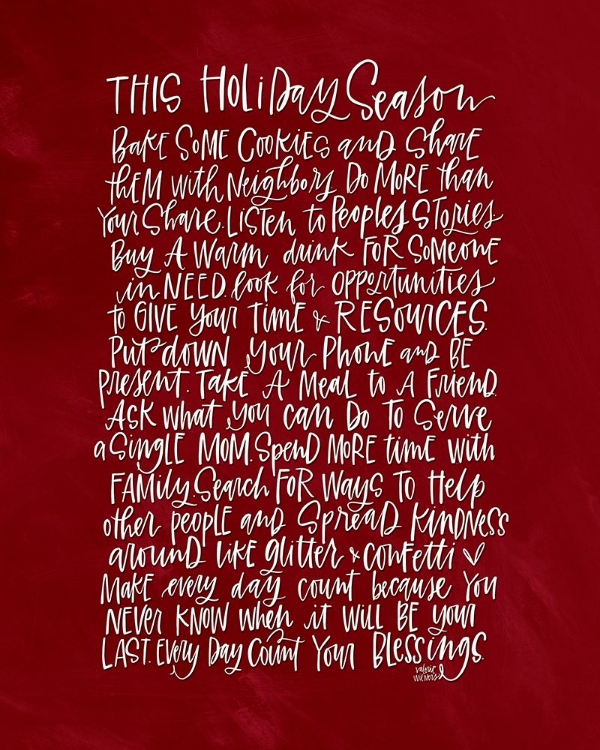 THIS HOLiDay Season
BakE SoME CookiEs and SHarE
thEM with Neighbors. Do MoRE than
Your Share. LisTEn to PeoplEs SToriEs.
Buy A Warm drink FoR SoMEonE
in NEED. look for OPPoRtunities
to GIVE your TimE & RESOURCES.
PuT down your PhonE and BE
PrEsent. TakE A MEal to A FriEnd.
Ask what you can Do To Serve
a SinglE MoM. SpenD MORE time with
FAMily. Search FoR Ways To Help
other people and SpreaD KiNDNess
arounD likE glitter & confetti
MakE every day count because You
NEVER KNOW when it Will BE your
LAST. Every Day Count Your Blessings.
valerie
wieners